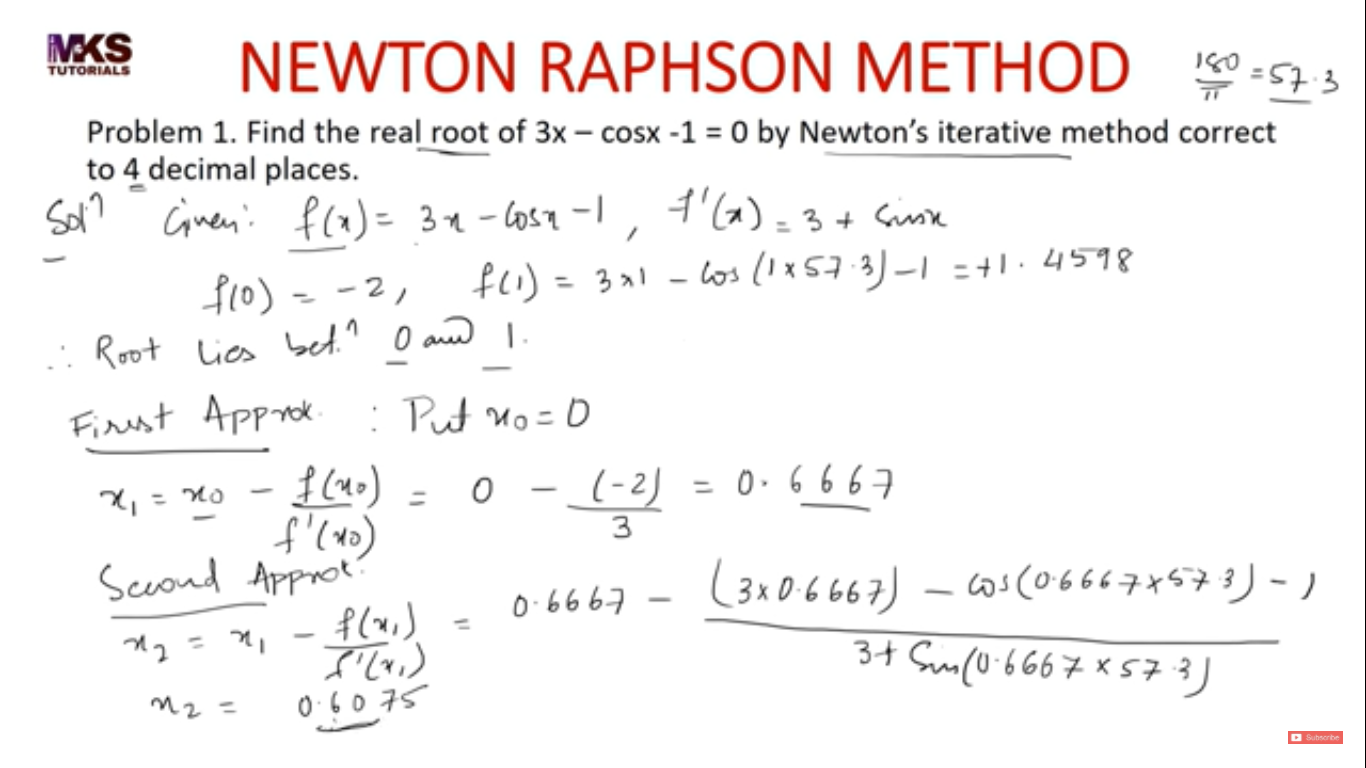 MKS
TUTORIALS
NEWTON RAPHSON METHOD
180/π = 57.3
Problem 1. Find the real root of 3x – cosx -1 = 0 by Newton's iterative method correct
to 4 decimal places.
Solⁿ Given: f(x) = 3x - cosx - 1, f'(x) = 3 + sinx
f(0) = -2, f(1) = 3×1 - cos(1×57.3) - 1 = +1.4598
∴ Root lies betⁿ 0 and 1.
First Approx. : Put x₀ = 0
x₁ = x₀ - f(x₀)/f'(x₀) = 0 - (-2)/3 = 0.6667
Second Approx.
x₂ = x₁ - f(x₁)/f'(x₁) = 0.6667 - (3×0.6667) - cos(0.6667×57.3) - 1 / 3 + Sin(0.6667×57.3)
x₂ = 0.6075
Subscribe